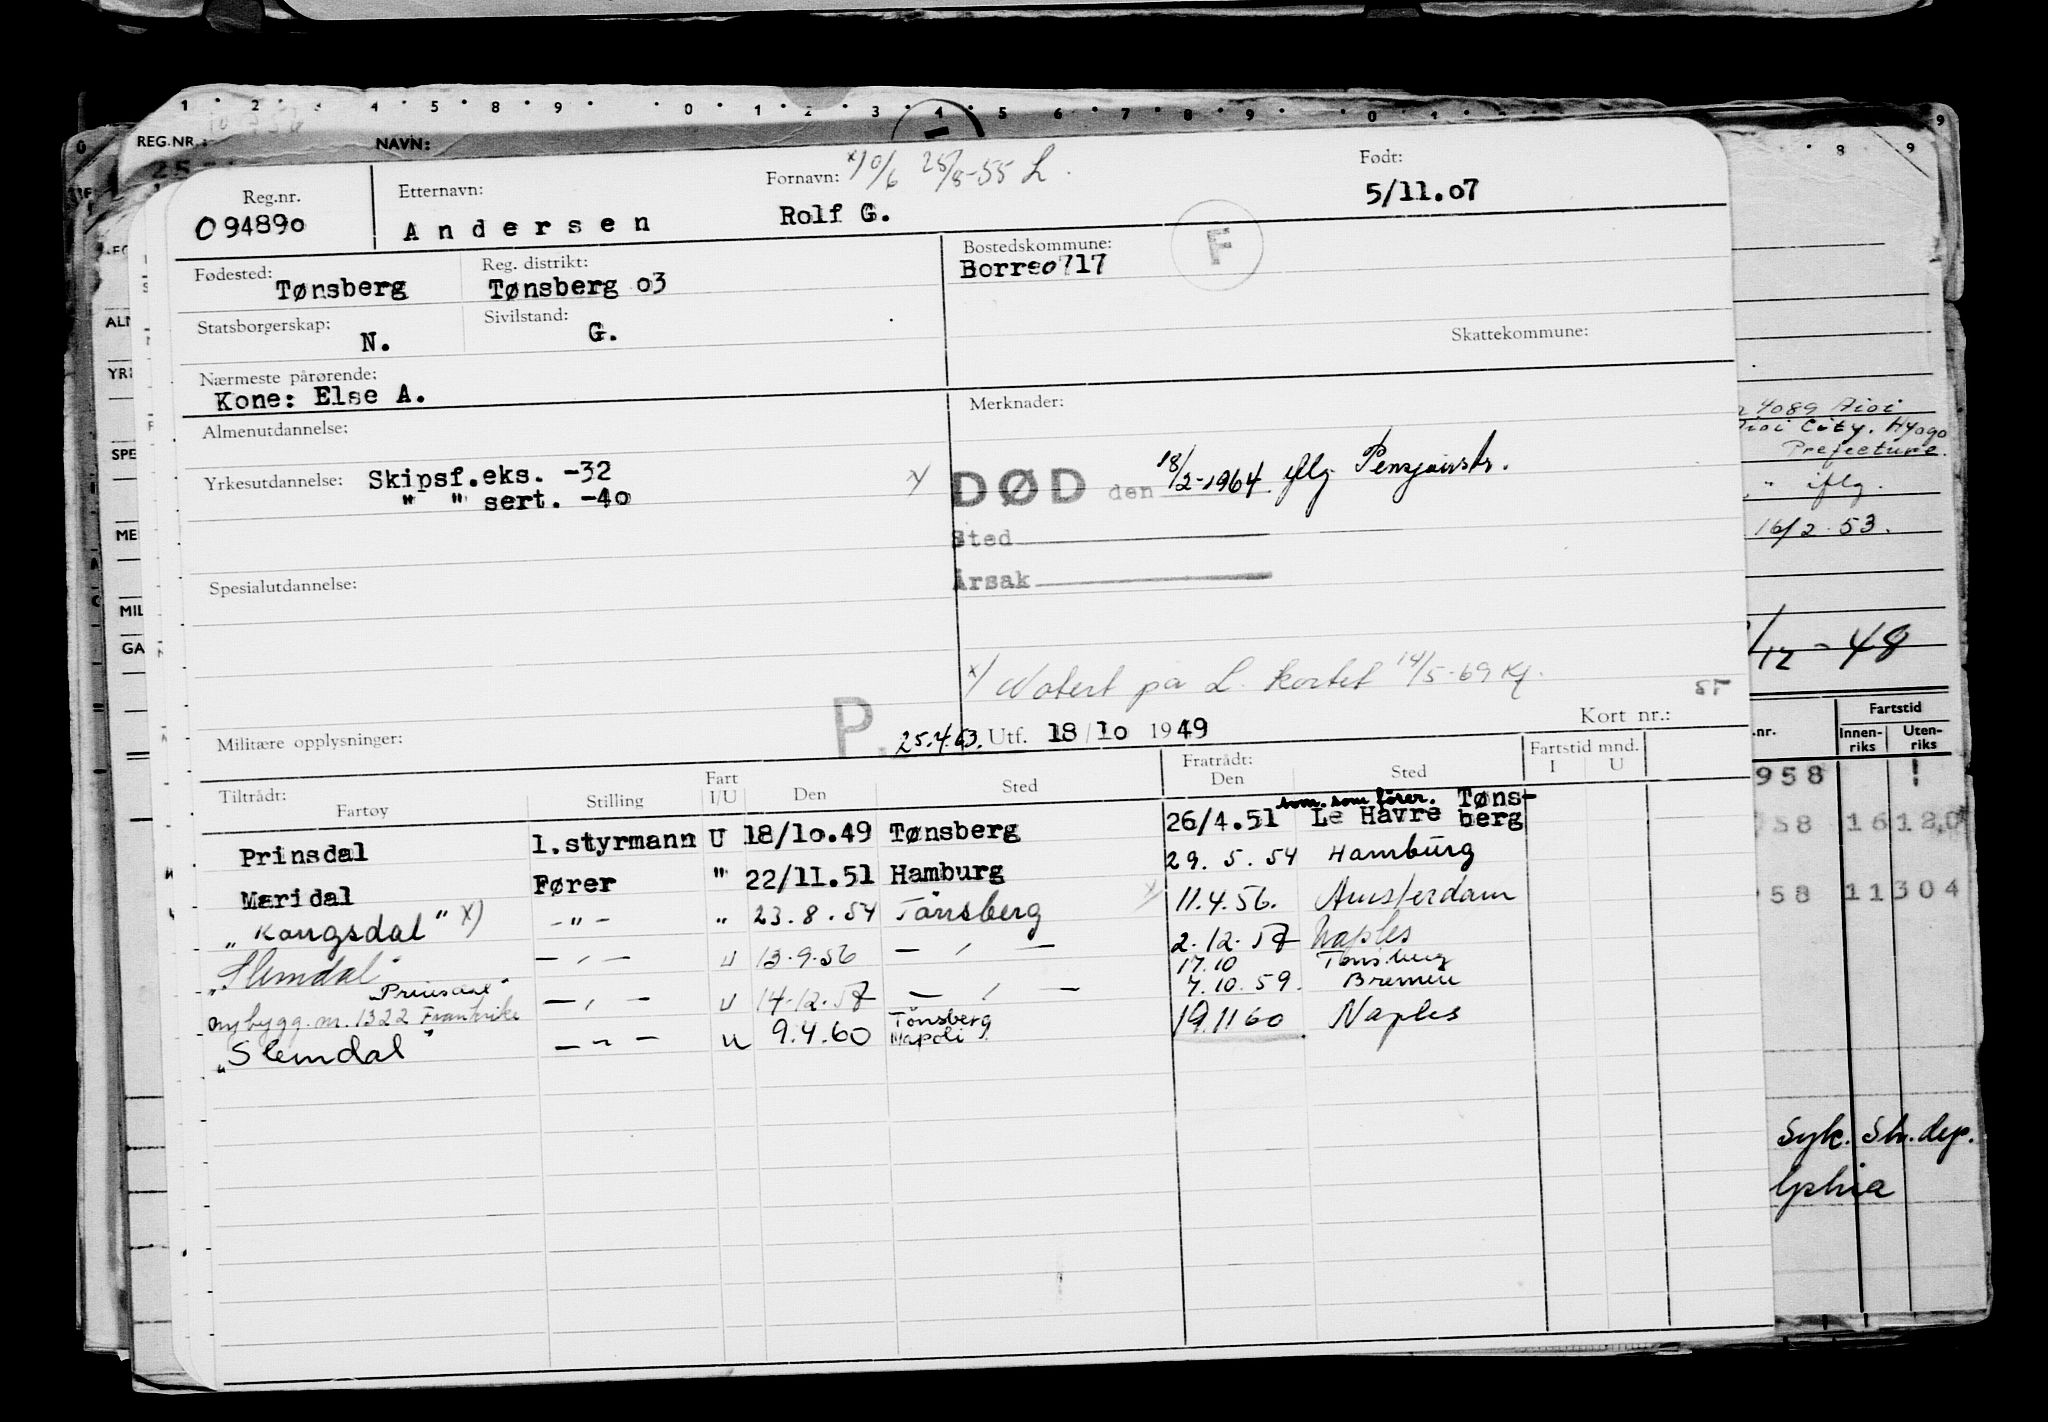 1 2 3 4 5 8 9 0 1 2 3 4 5 6 7 8 9 0 1 2 9
REG.NR.: NAVN:
25
Reg.nr. Etternavn: Fornavn: x) 0/6 25/8-55 L. Født:
094890 Andersen Rolf G. 5/11.07
Fødested: Reg. distrikt: Bostedskommune: F
Tønsberg Tønsberg 03 Borre0717
Statsborgerskap: Sivilstand: Skattekommune:
N. G.
Nærmeste pårørende:
Kone: Else A.
Almenutdannelse: Merknader:
Yrkesutdannelse: Skipsf.eks. -32
" " sert. -40
x) DØD den 18/2-1964. iflg Pensjonstr.
Sted
Årsak
Spesialutdannelse:
x) Notert på L. kortet 14/5-69 Kf.
Militære opplysninger: P. 25.4.63. Utf. 18/10 1949 Kort nr.:
Tiltrådt: Fratrådt: Fartstid mnd.
Fartøy Stilling Fart I/U Den Sted Den Sted I U
Prinsdal 1.styrmann U 18/10.49 Tønsberg 26/4.51 som. som fører. Le Havre Tøns-berg
Maridal Fører " 22/11.51 Hamburg 29.5.54 Hamburg
"Kongsdal" x) -"- " 23.8.54 Tönsberg 11.4.56. Amsterdam
"Slemdal" -"- U 13.9.56 -"- 2.12.57 Naples
17.10 Tönsberg
"Prinsdal"
nybygg. nr. 1322 Frankrike -"- U 14.12.57 -"- 7.10.59. Bremen
"Slemdal" -"- U 9.4.60 Tönsberg Napoli 19.11 60 Naples
4089 Aioi
Aioi City. Hyogo
Prefecture.
" iflg.
16/2.53.
/12-48
Fartstid
.nr. Innen-riks Uten-riks
958
58 16 12,0
58 11 304
Syk. Sh.dep.
lphia
ALN
YRI
SPE
ME
MIL
GA